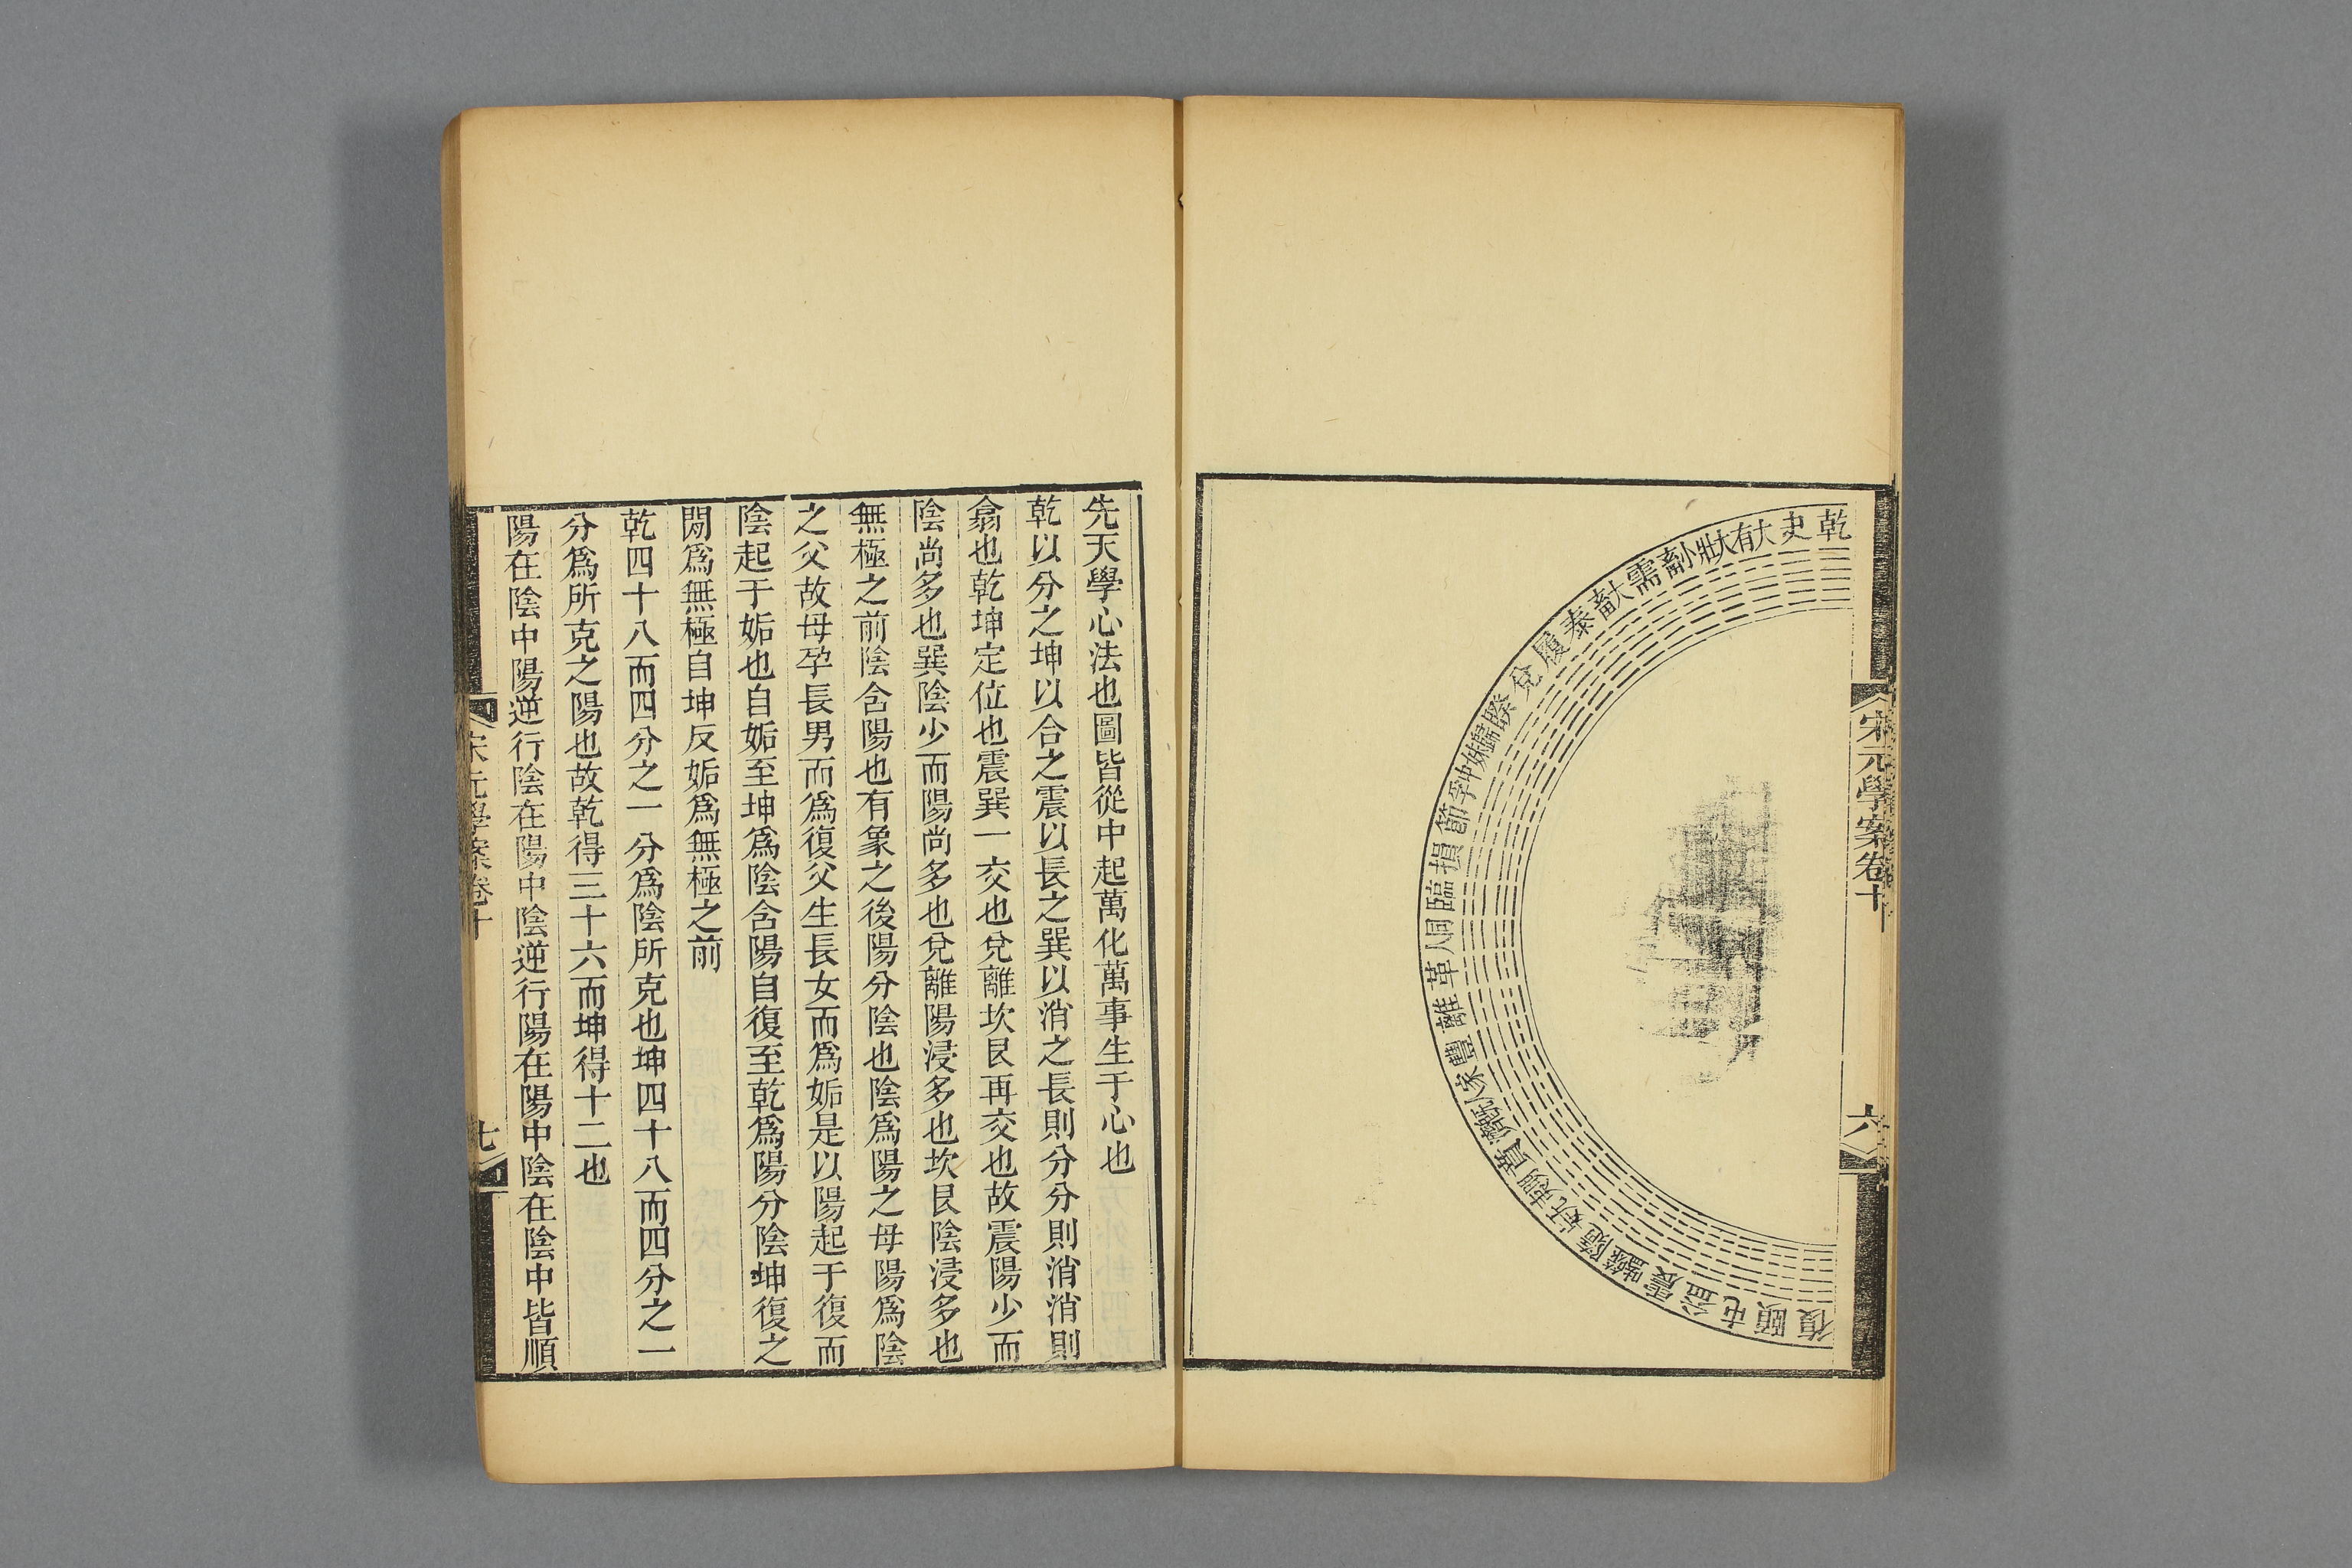 宋元學案卷十
六
乾
夬
大有
大壯
小畜
需
大畜
泰
履
兌
睽
歸妹
中孚
節
損
臨
同人
革
離
豐
家人
既濟
賁
明夷
无妄
隨
噬嗑
震
益
屯
頤
復
先天學心法也圖皆從中起萬化萬事生于心也
乾以分之坤以合之震以長之巽以消之長則分分則消消則
翕也乾坤定位也震巽一交也兌離坎艮再交也故震陽少而
陰尚多也巽陰少而陽尚多也兌離陽浸多也坎艮陰浸多也
無極之前陰含陽也有象之後陽分陰也陰爲陽之母陽爲陰
之父故母孕長男而爲復父生長女而爲姤是以陽起于復而
陰起于姤也自姤至坤爲陰含陽自復至乾爲陽分陰坤復之
閒爲無極自坤反姤爲無極之前
乾四十八而四分之一分爲陰所克也坤四十八而四分之一
分爲所克之陽也故乾得三十六而坤得十二也
陽在陰中陽逆行陰在陽中陰逆行陽在陽中陰在陰中皆順
宋元學案卷十
七